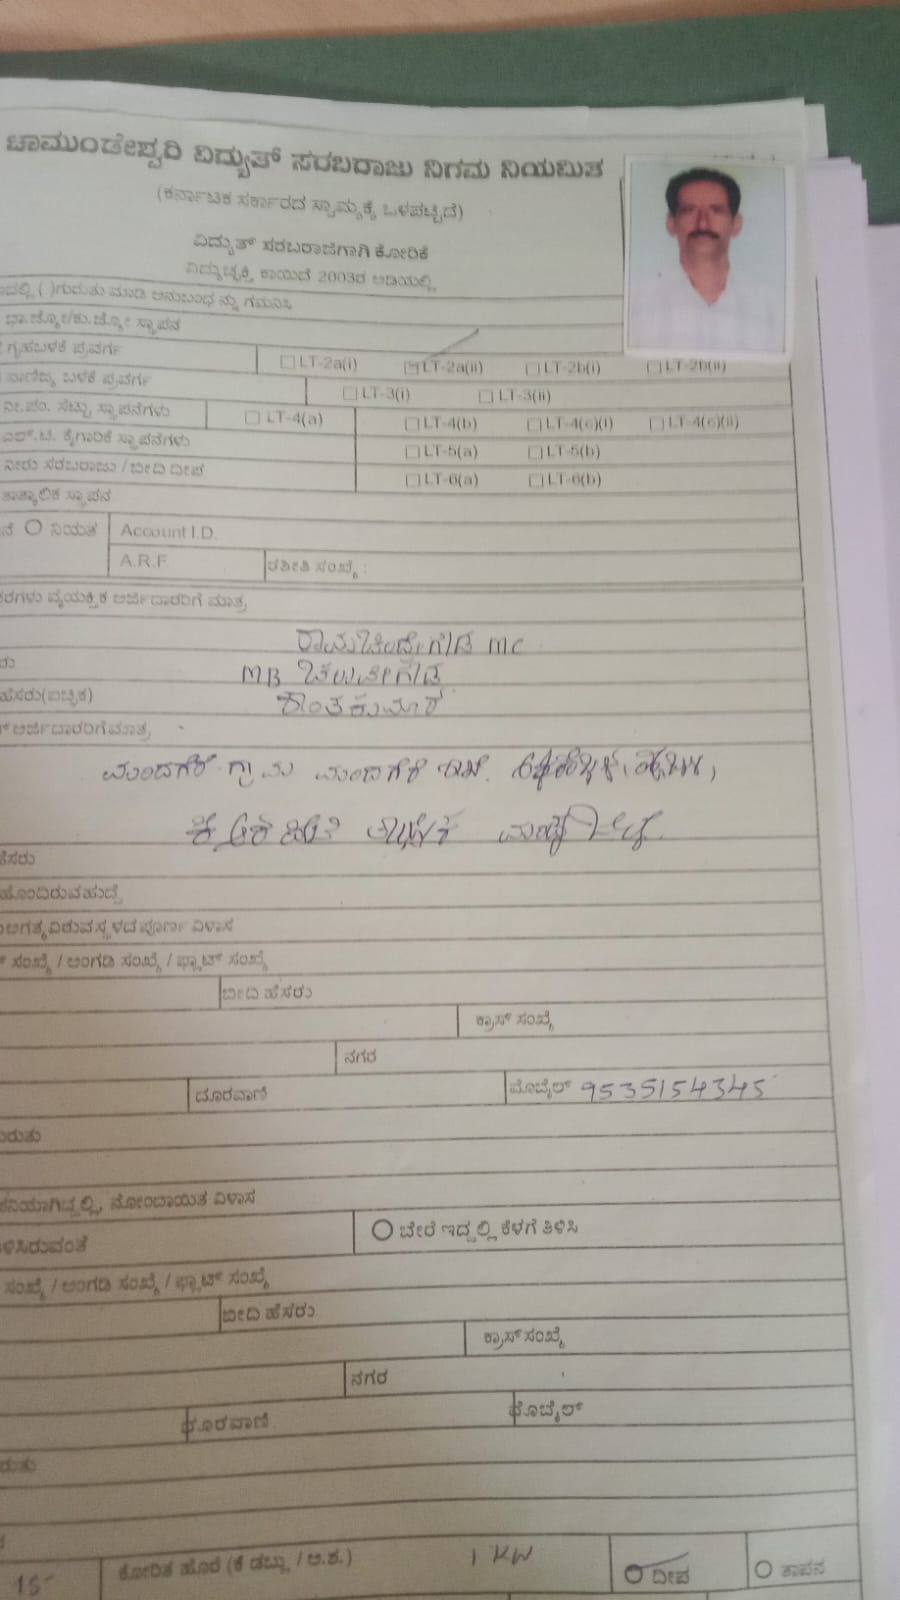 ಚಾಮುಂಡೇಶ್ವರಿ ವಿದ್ಯುತ್ ಸರಬರಾಜು ನಿಗಮ ನಿಯಮಿತ
(ಕರ್ನಾಟಕ ಸರ್ಕಾರದ ಸ್ವಾಮ್ಯಕ್ಕೆ ಒಳಪಟ್ಟಿದೆ)
ವಿದ್ಯುತ್ ಸರಬರಾಜಿಗಾಗಿ ಕೋರಿಕೆ
ವಿದ್ಯುಚ್ಛಕ್ತಿ ಕಾಯಿದೆ 2003ರ ಅಡಿಯಲ್ಲಿ
( )ಗುರುತು ಮಾಡಿ ಅನುಬಂಧ ನ್ನು ಗಮನಿಸಿ
ಸ್ಥಾಪನ
ಗೃಹಬಳಕೆ ಪ್ರವರ್ಗ LT-2a(i) LT-2a(ii) LT-2b(i) LT-2b(ii)
ವಾಣಿಜ್ಯ ಬಳಕೆ ಪ್ರವರ್ಗ LT-3(i) LT-3(ii)
ನೀ.ಪಂ. ಸೆಟ್ಟು ಸ್ಥಾಪನೆಗಳು LT-4(a) LT-4(b) LT-4(c)(i) LT-4(c)(ii)
ಎಲ್.ಟಿ. ಕೈಗಾರಿಕೆ ಸ್ಥಾಪನೆಗಳು LT-5(a) LT-5(b)
ನೀರು ಸರಬರಾಜು / ಬೀದಿ ದೀಪ LT-6(a) LT-6(b)
ತಾತ್ಕಾಲಿಕ ಸ್ಥಾಪನ
ನಿಯತ Account I.D.
A.R.F. ರಶೀತಿ ಸಂಖ್ಯೆ :
ವೈಯಕ್ತಿಕ ಅರ್ಜಿದಾರರಿಗೆ ಮಾತ್ರ
ರಾಮಚಂದ್ರೇಗೌಡ MC
MB
ಹೆಸರು(ಐಚ್ಛಿಕ) ಶಾಂತಕುಮಾರಿ
ಅರ್ಜಿದಾರರಿಗೆ ಮಾತ್ರ
ಮಂದಗೆರೆ ಗ್ರಾಮ ಮಂದಗೆರೆ
ಹೆಸರು
ಹೊಂದಿರುವ ಹುದ್ದೆ
ಅಗತ್ಯವಿರುವ ಸ್ಥಳದ ಪೂರ್ಣ ವಿಳಾಸ
ಸಂಖ್ಯೆ / ಅಂಗಡಿ ಸಂಖ್ಯೆ / ಫ್ಲಾಟ್ ಸಂಖ್ಯೆ
ಬೀದಿ ಹೆಸರು
ಕ್ರಾಸ್ ಸಂಖ್ಯೆ
ನಗರ
ದೂರವಾಣಿ ಮೊಬೈಲ್ 9535154345
ನೋಂದಾಯಿತ ವಿಳಾಸ
ಬೇರೆ ಇದ್ದಲ್ಲಿ ಕೆಳಗೆ ತಿಳಿಸಿ
ಸಂಖ್ಯೆ / ಅಂಗಡಿ ಸಂಖ್ಯೆ / ಫ್ಲಾಟ್ ಸಂಖ್ಯೆ
ಬೀದಿ ಹೆಸರು
ಕ್ರಾಸ್ ಸಂಖ್ಯೆ
ನಗರ
ದೂರವಾಣಿ ಮೊಬೈಲ್
15 ಕೋರಿತ ಹೊರೆ (ಕೆ ಡಬ್ಲ್ಯು / ಅ.ಶ.) 1 KW ದೀಪ ತಾಪನ